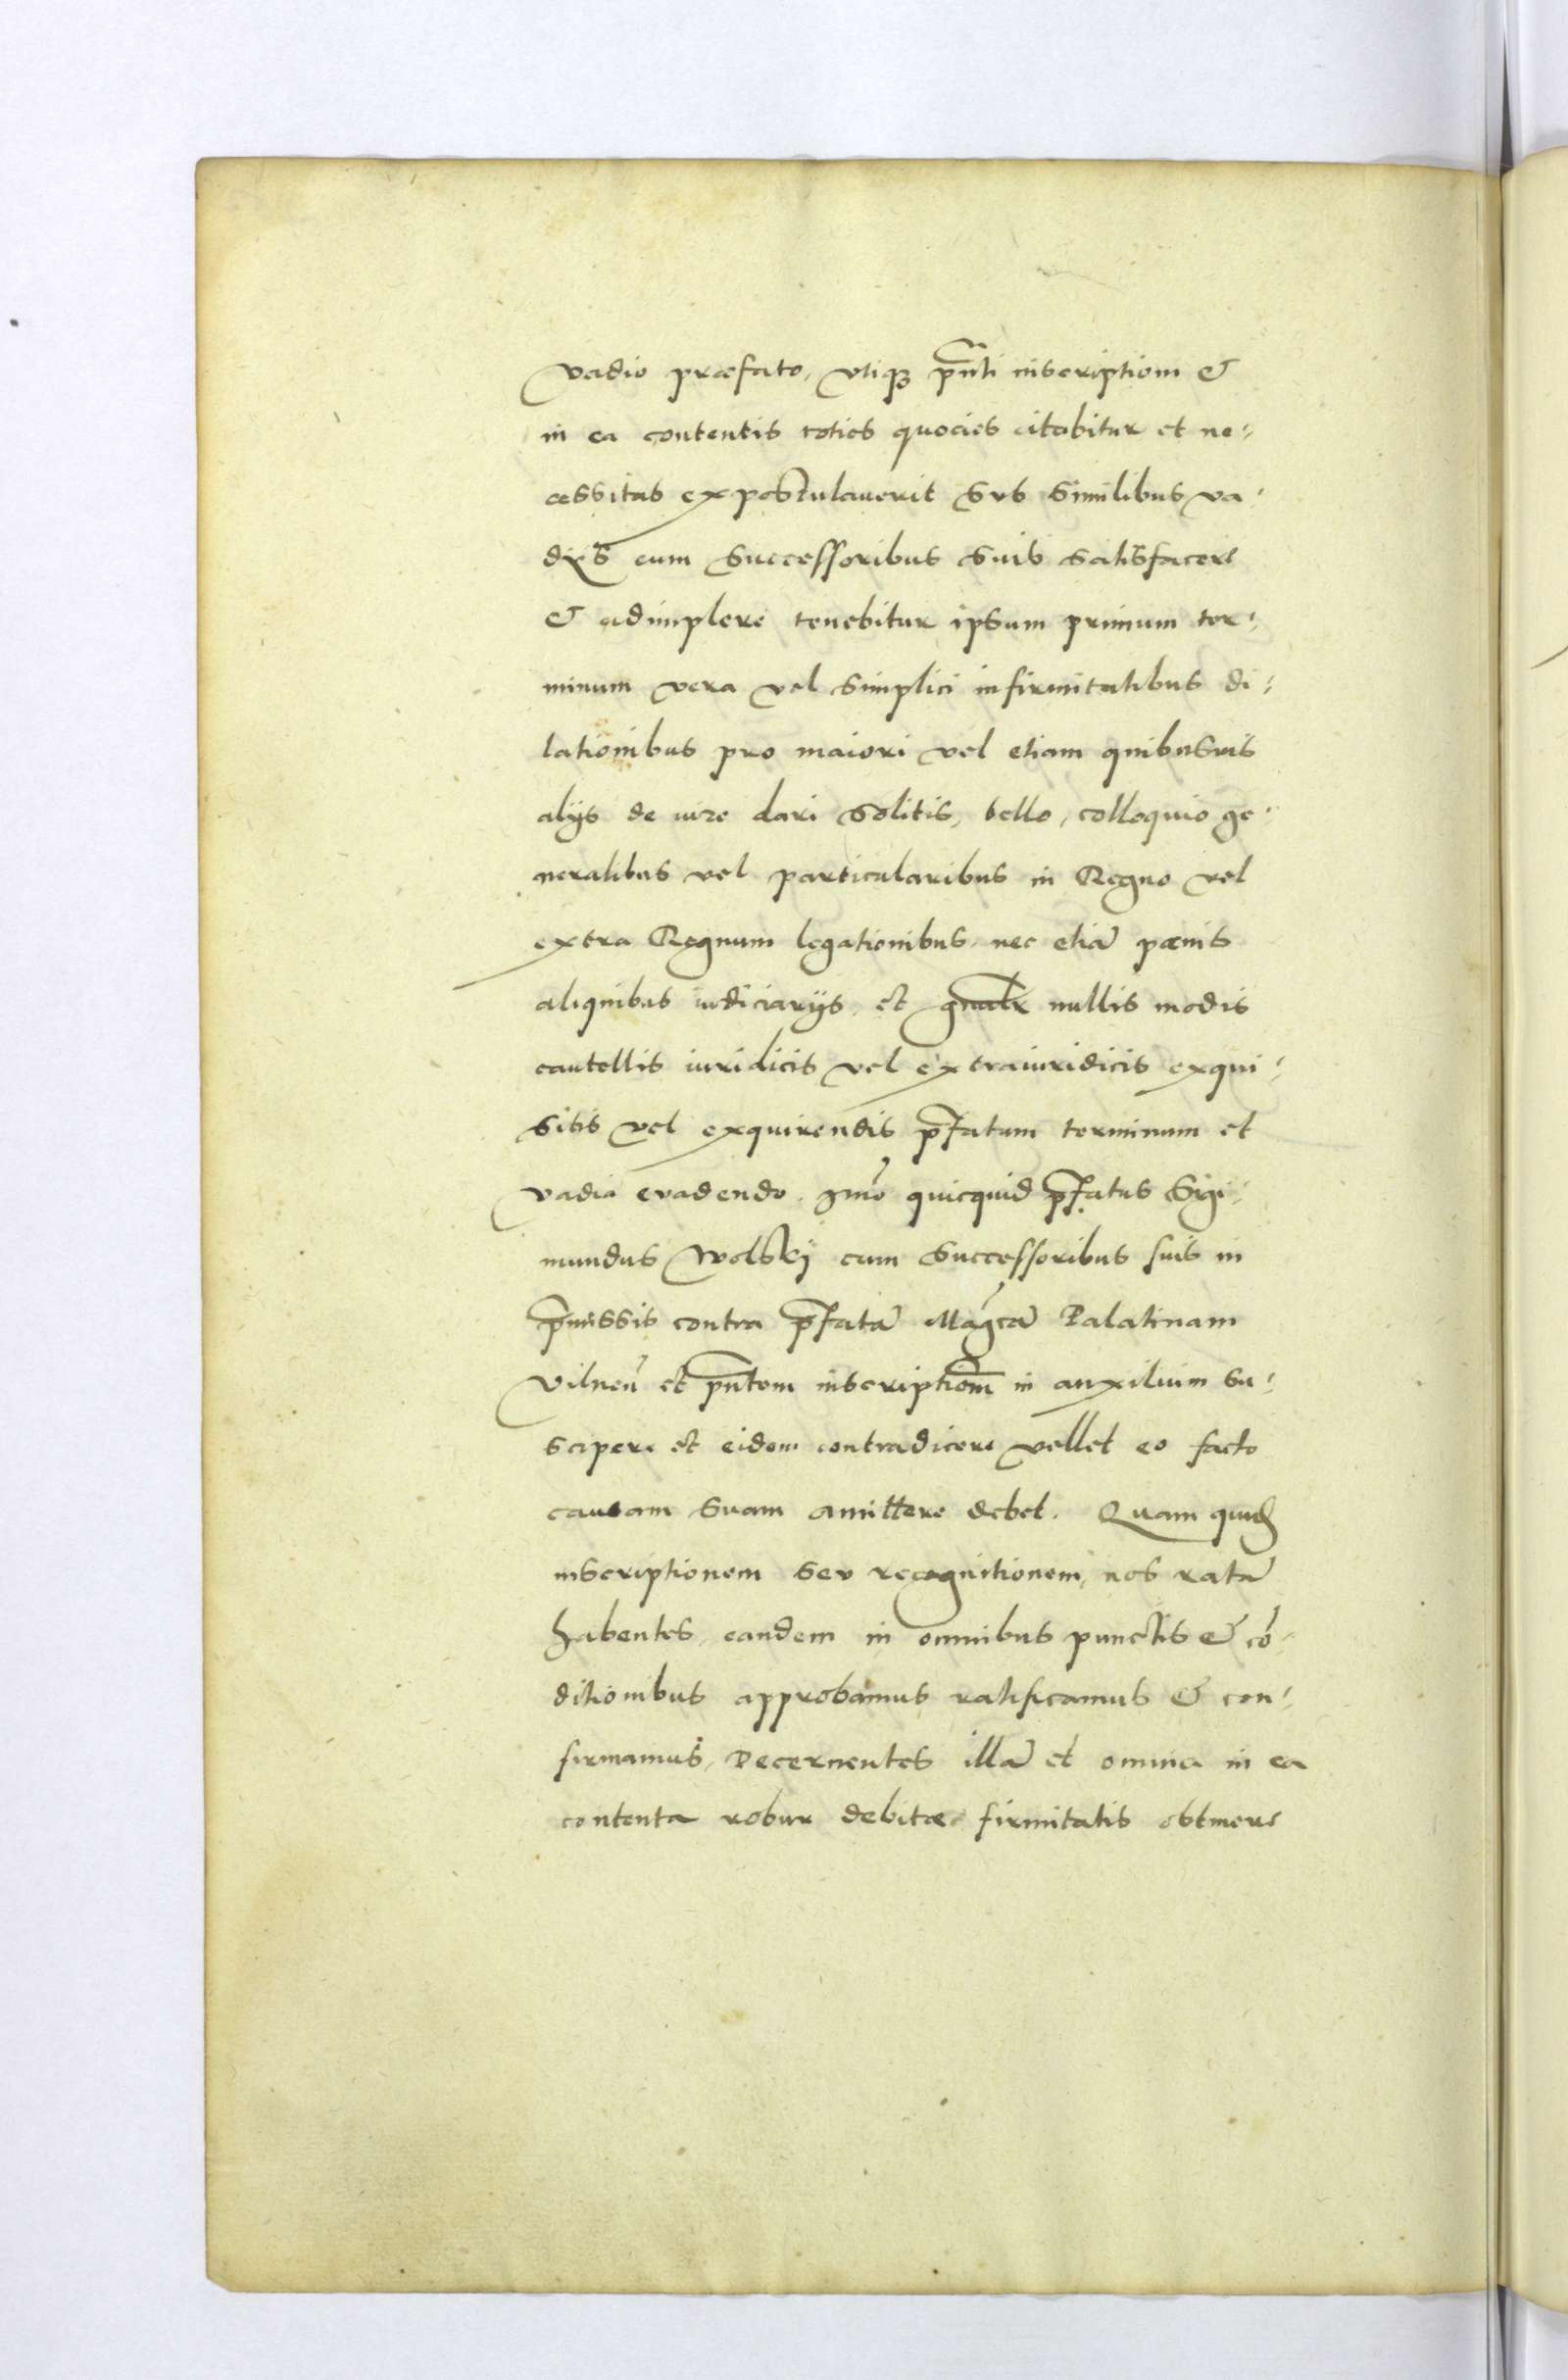 vadio præfato, vtiqȝ pn̄ti inscriptioni &
in ea contentis toties quocies citabitur et ne-
cessitas expostulauerit sub similibus va-
dijs cum successoribus suis satisfacere
& adimplere tenebitur ipsum primum ter-
minum vera vel simplici infirmitatibus di-
lationibus pro maiori vel etiam quibusuis
alijs de iure dari solitis, bello, colloquio ge-
neralibus vel particularibus in Regno vel
extra Regnum legationibus nec etiā pænis
aliquibus iudiciarijs et gnalr nullis modis
cautellis iuridicis vel extraiuridicis exqui-
sitis vel exquirendis p̄fatum terminum et
vadia euadendo. Imō quicquid p̄fatus Sigi-
mundus Wolskij cum successoribus suis in
p̄missis contra p̄fatā Mag̃cā Palatinam
Vilneñ et pn̄tem inscriptiom̄ in auxilium su-
scipere et eidem contradicere vellet eo facto
causam suam amittere debet. Quam quidẽ
inscriptionem seu recognitionem, nos ratā
habentes, eandem in omnibus punctis & cō-
ditionibus approbamus ratificamus & con-
firmamus, Decernentes illā et omnia in ea
contenta robur debitæ firmitatis obtinere